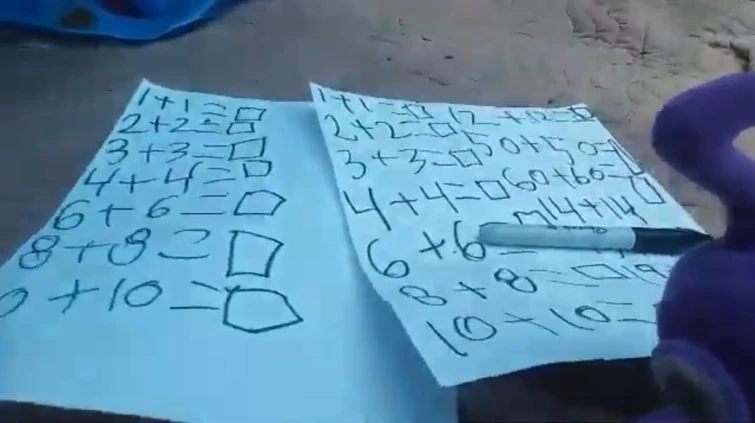 1+1=□
2+2=□
3+3=□
4+4=□
6+6=□
8+8=□
0+10=□
1+1=□ 12+12=□
2+2=□ 50+50=□
3+3=□ 60+60=□
4+4=□ 14+14
6+6=
8+8=□
10+10=